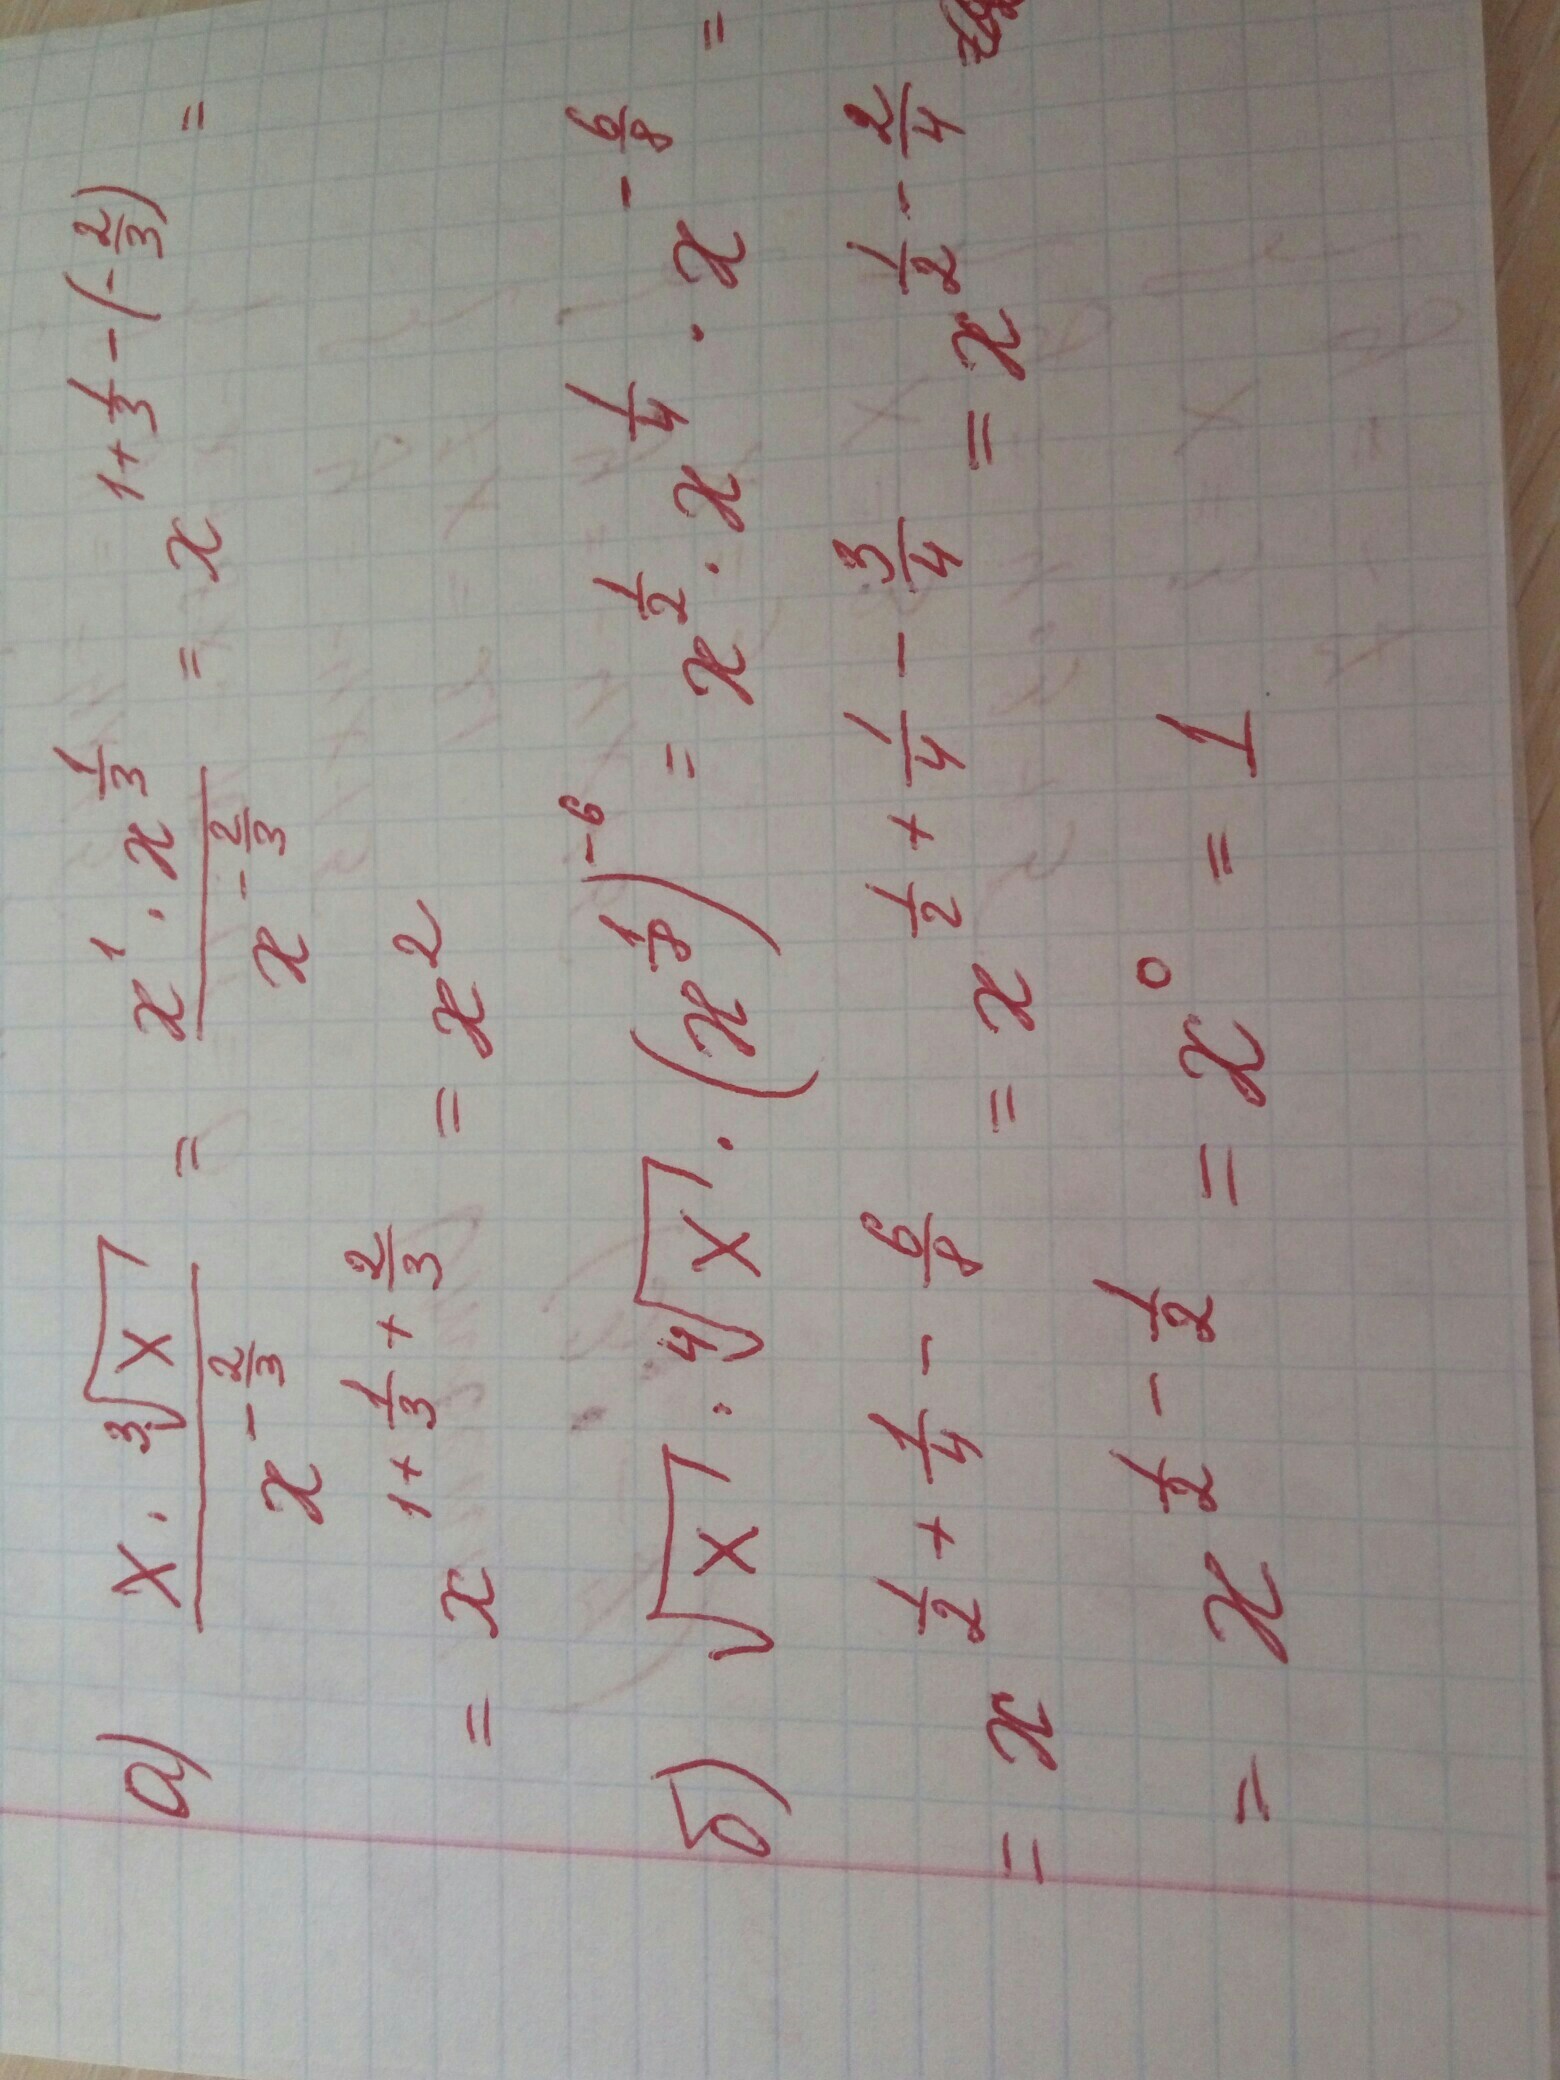 а) x · ∛x / x^(-2/3) = x^1 · x^(1/3) / x^(-2/3) = x^(1+1/3-(-2/3)) =
= x^(1+1/3+2/3) = x^2
б) √x · ∜x · (x^(1/8))^(-6) = x^(1/2) · x^(1/4) · x^(-6/8) =
= x^(1/2+1/4-6/8) = x^(1/2+1/4-3/4) = x^(1/2-2/4)
= x^(1/2-1/2) = x^0 = 1